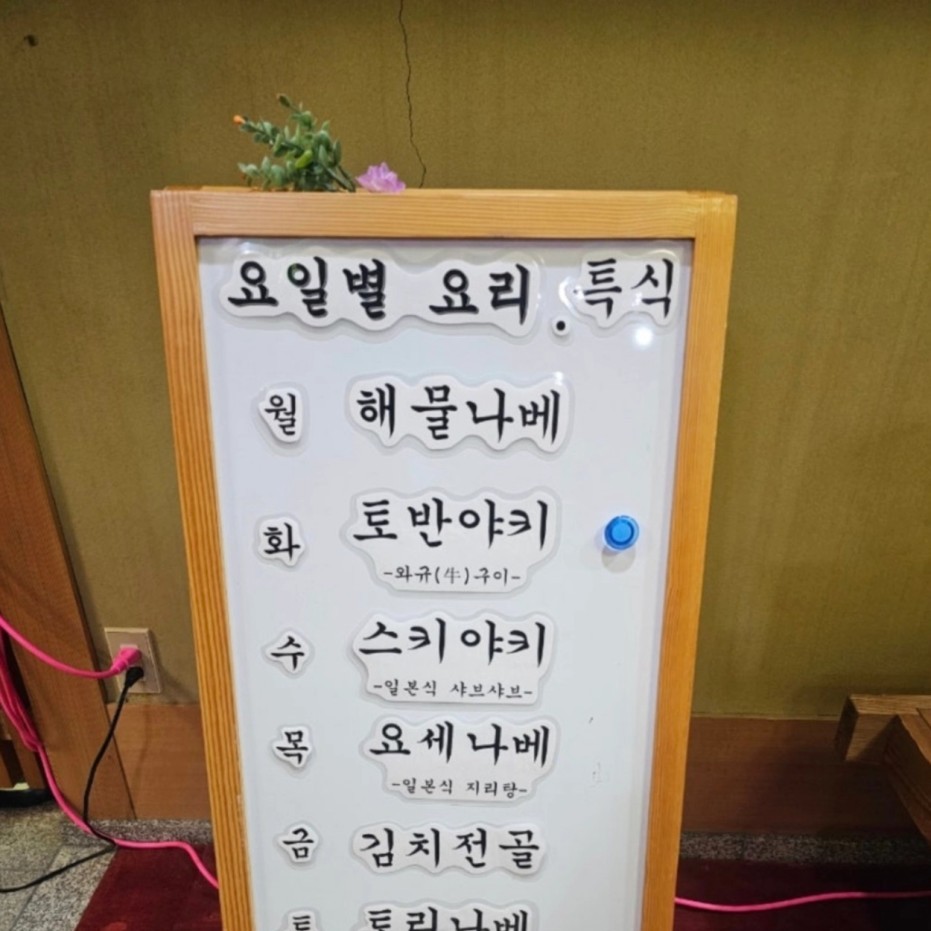 요일별 요리.특식
월 해물나베
화 토반야키
-와규(牛)구이-
수 스키야키
-일본식 샤브샤브-
목 요세나베
-일본식 지리탕-
금 김치전골
토 토리나베